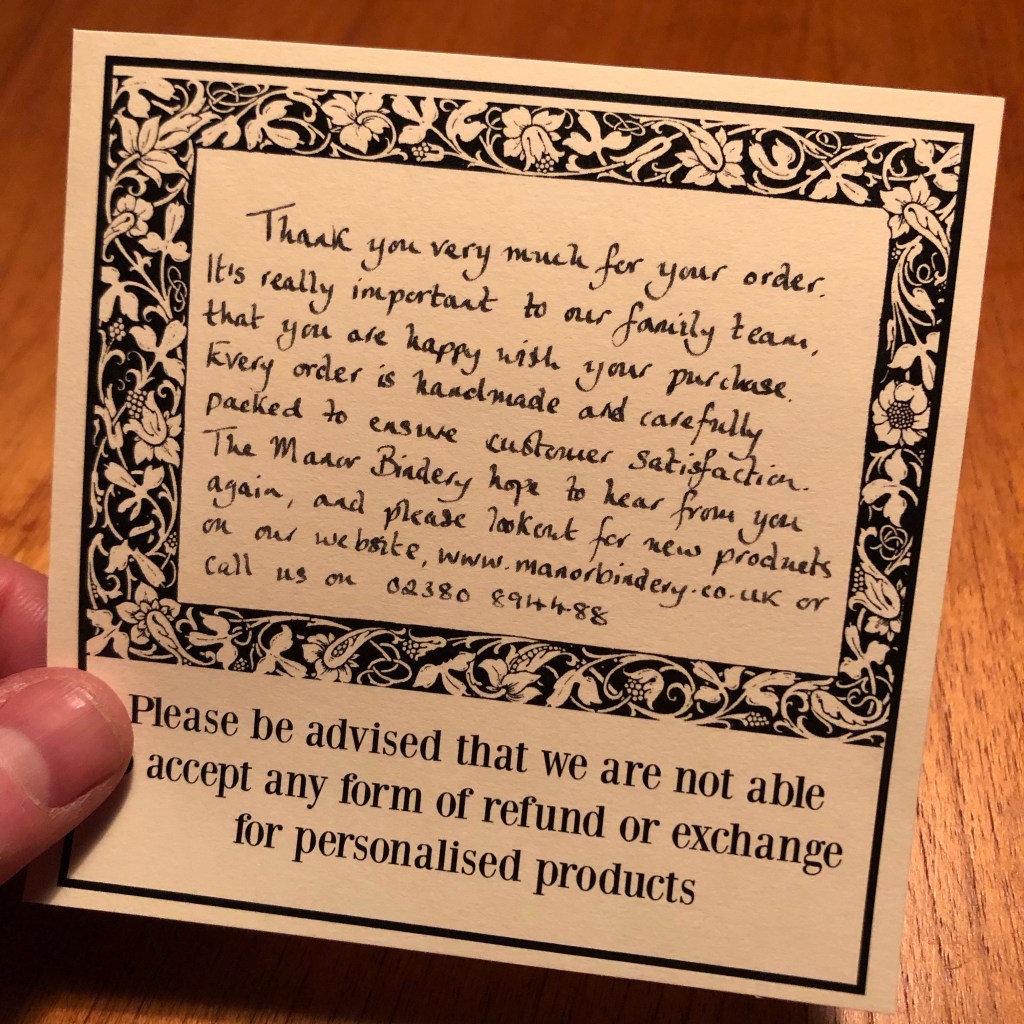 Thank you very much for your order.
It's really important to our family team,
that you are happy with your purchase.
Every order is handmade and carefully
packed to ensure customer satisfaction.
The Manor Bindery hope to hear from you
again, and please lookout for new products
on our website, www.manorbindery.co.uk or
call us on 02380 894488
Please be advised that we are not able
accept any form of refund or exchange
for personalised products